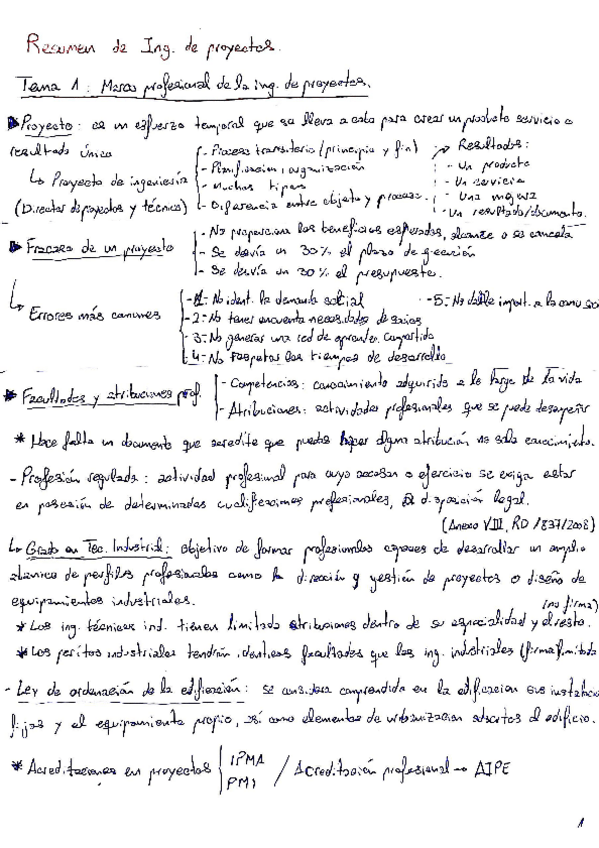 Resumen de Ing. de proyectos.
Tema 1: Marco profesional de la ing. de proyectos.
Proyecto: es un esfuerzo temporal que se lleva a cabo para crear un producto servicio o
resultado único
- Proceso transitorio (principio y fin)
- Planificación, organización
- Muchos tipos
- Diferencia entre objeto y proceso.
Resultados:
- Un producto
- Un servicio
- Una mejora
- Un resultado/documento.
↳ Proyecto de ingeniería
(Director de proyectos y técnico)
Fracaso de un proyecto
- No proporciona los beneficios esperados, alcance o se cancela
- Se desvía un 30% el plazo de ejecución
- Se desvía un 30% el presupuesto.
↳ Errores más comunes
- 1- No ident. la demanda social
- 2- No tener en cuenta necesidades de socios
- 3- No generar una red de aprender. compartida
- 4- No respetar los tiempos de desarrollo
- 5- No darle import. a la
Facultades y atribuciones prof.
- Competencias: conocimiento adquirido a lo largo de la vida
- Atribuciones: actividades profesionales que se puede desempeñar
* Hace falta un documento que acredite que puedas hacer alguna atribución no solo conocimiento.
- Profesión regulada: actividad profesional para cuyo acceso o ejercicio se exige estar
en posesión de determinadas cualificaciones profesionales, disposición legal.
(Anexo VIII, RD 1837/2008)
↳ Grado en Tec. Industrial: objetivo de formar profesionales capaces de desarrollar un amplio
abanico de perfiles profesionales como la dirección y gestión de proyectos o diseño de
equipamientos industriales.
(no firma)
* Los ing. técnicos ind. tienen limitado atribuciones dentro de su especialidad y el resto.
* Los peritos industriales tendrán identicas facultades que los ing. industriales (firma limitada
- Ley de ordenación de la edificación: se considera comprendida en la edificacion sus instalacio
fijas y el equipamiento propio, así como elementos de urbanización adscritos al edificio.
* Acreditaciones en proyectos { IPMA
PMI / Acreditación profesional → AIPE
1